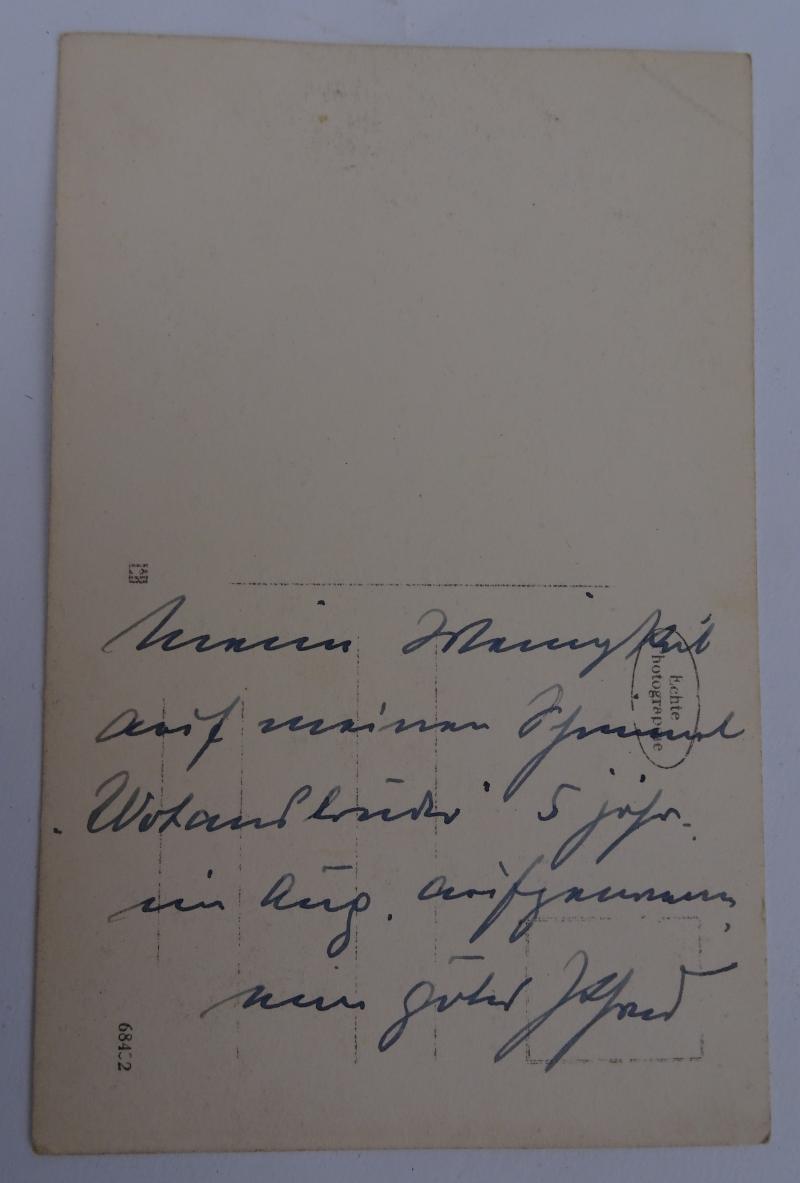 Meine Wenigkeit
auf meinem Schimmel
"Wotansbruder" 5 jähr.
im Aug. aufgenommen,
ein gutes Pferd
Echte
Photographie